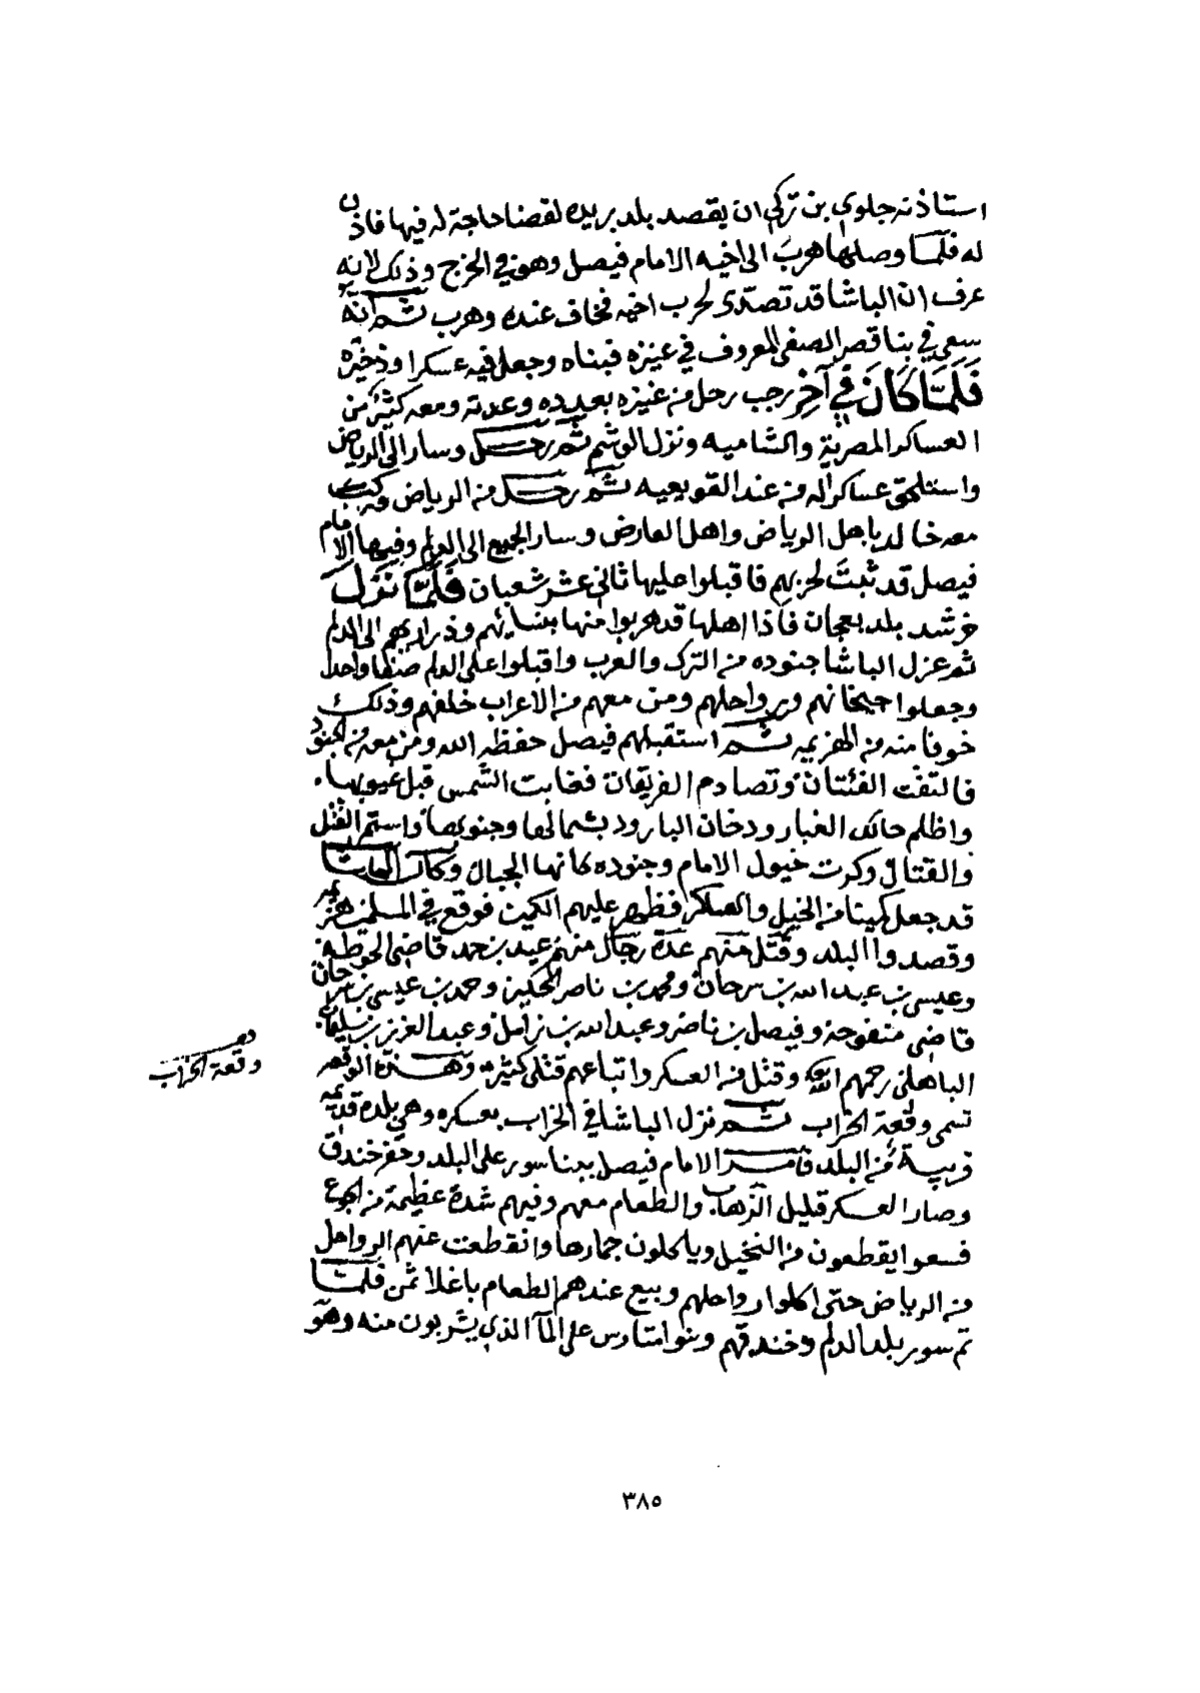 استاذنه جلوي بن تركي ان يقصد بلد بريده لقضا حاجة له فيها فاذن
له فلما وصلها هرب الى اخيه الامام فيصل وهو في الخرج وذلك لانه
عرف ان الباشا قد تصدى لحرب اخيه فخاف عنده وهرب ثم انه
سعي في بنا قصر الصفى المعروف في عنيزه فبناه وجعل فيه عسكرا وذخيره
فلما كان في آخر رجب رحل من عنيزه بعدده وعدته ومعه كثير من
العساكر المصرية والشاميه ونزل الوشم ثم رحل وسار الى الرياض
واستلحق عساكر له من عند القويعيه ثم رحل من الرياض وركب
معه خالد باهل الرياض واهل العارض وسار الجميع الى الدلم وفيها الامام
فيصل قد ثبت لحربهم فاقبلوا عليها ثاني عشر شعبان فلما نزل
خرشد بلد نعجان فاذا اهلها قد هربوا منها بنسائهم وذراريهم الى الدلم
ثم عزل الباشا جنوده من الترك والعرب واقبلوا على الدلم صفا واحدا
وجعلوا جبخانهم ورواحلهم ومن معهم من الاعراب خلفهم وذلك
خوفا منه من الهزيمه ثم استقبلهم فيصل حفظه الله ومن معه من الجنود
فالتفت الفئتان وتصادم الفريقان فغابت الشمس قبل غيوبها
واظلم حالك الغبار ودخان البارود بشمالها وجنوبها واستمر القتل
والقتال وكرت خيول الامام وجنوده كانها الجبال وكان الباشا
قد جعل كمينا من الخيل والعسكر فظهر عليهم الكمين فوقع في المسلمين هزيمه
وقصدوا البلد وقتل منهم عدة رجال منهم عيد بن حمد قاضي الحوطه
وعيسى بن عبد الله بن سرحان ومحمد بن ناصر الحكير وحمد بن عيسى بن سرحان
قاضي منفوحه وفيصل بن ناصر وعبد الله بن زامل وعبد العزيز بن سليمان
الباهلي رحمهم الله وقتل من العسكر واتباعهم قتلى كثيره وهذه الوقعه
تسمى وقعة الخراب ثم نزل الباشا في الخراب بعسكره وهي بلدة قديمه
قريبة من البلد فامر الامام فيصل ببنا سور على البلد وحفر خندق
وصار العسكر قليل الزهاب والطعام معهم وفيهم شدة عظيمة من الجوع
فسعوا يقطعون من النخيل وياكلون جمارها وانقطعت عنهم الرواحل
من الرياض حتى اكلوا رواحلهم وبيع عندهم الطعام باغلا ثمن فلما
تم سور بلد الدلم وخندقهم وبنوا متارس على المآ الذي يشربون منه وهو
وقعة الخراب
٣٨٥